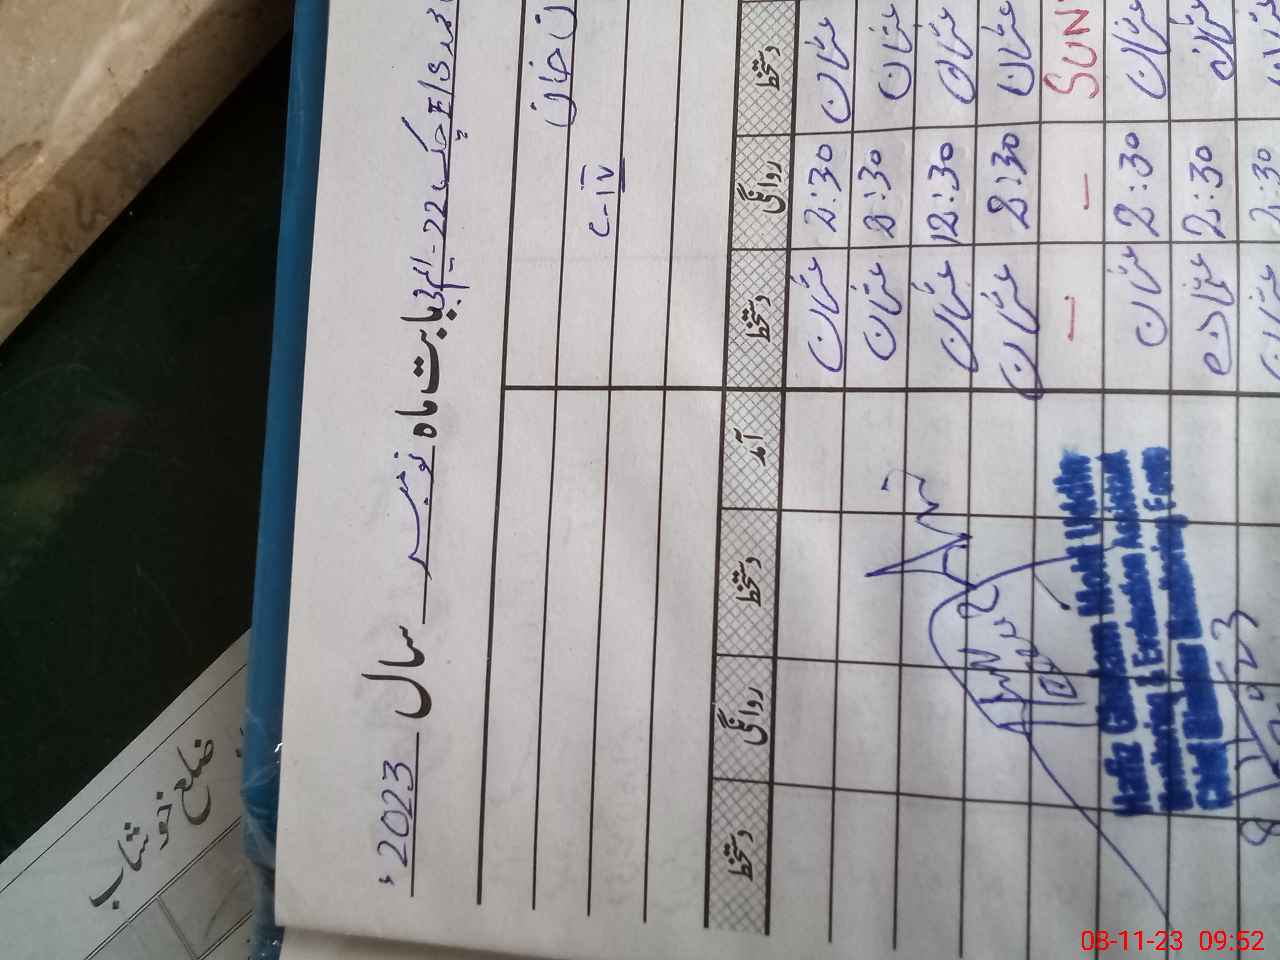 چک 22 ایم بی بابت ماہ نومبر سال 2023ء
ن خان
C-IV
دستخط روانگی دستخط آمد دستخط روانگی دستخط
عثمان 2:30 عثمان
عثمان 2:30 عثمان
عثمان 12:30 عثمان
عثمان 2:30 عثمان
SUN - -
عثمان 2:30 عثمان
عثمان 2:30 عثمان
عثمان 2:30 عثمان
Hafiz Ghulam Mohi Uddin
Monitoring & Evaluation Assistant
Chief Minister Monitoring Force
ضلع خوشاب
08-11-23 09:52